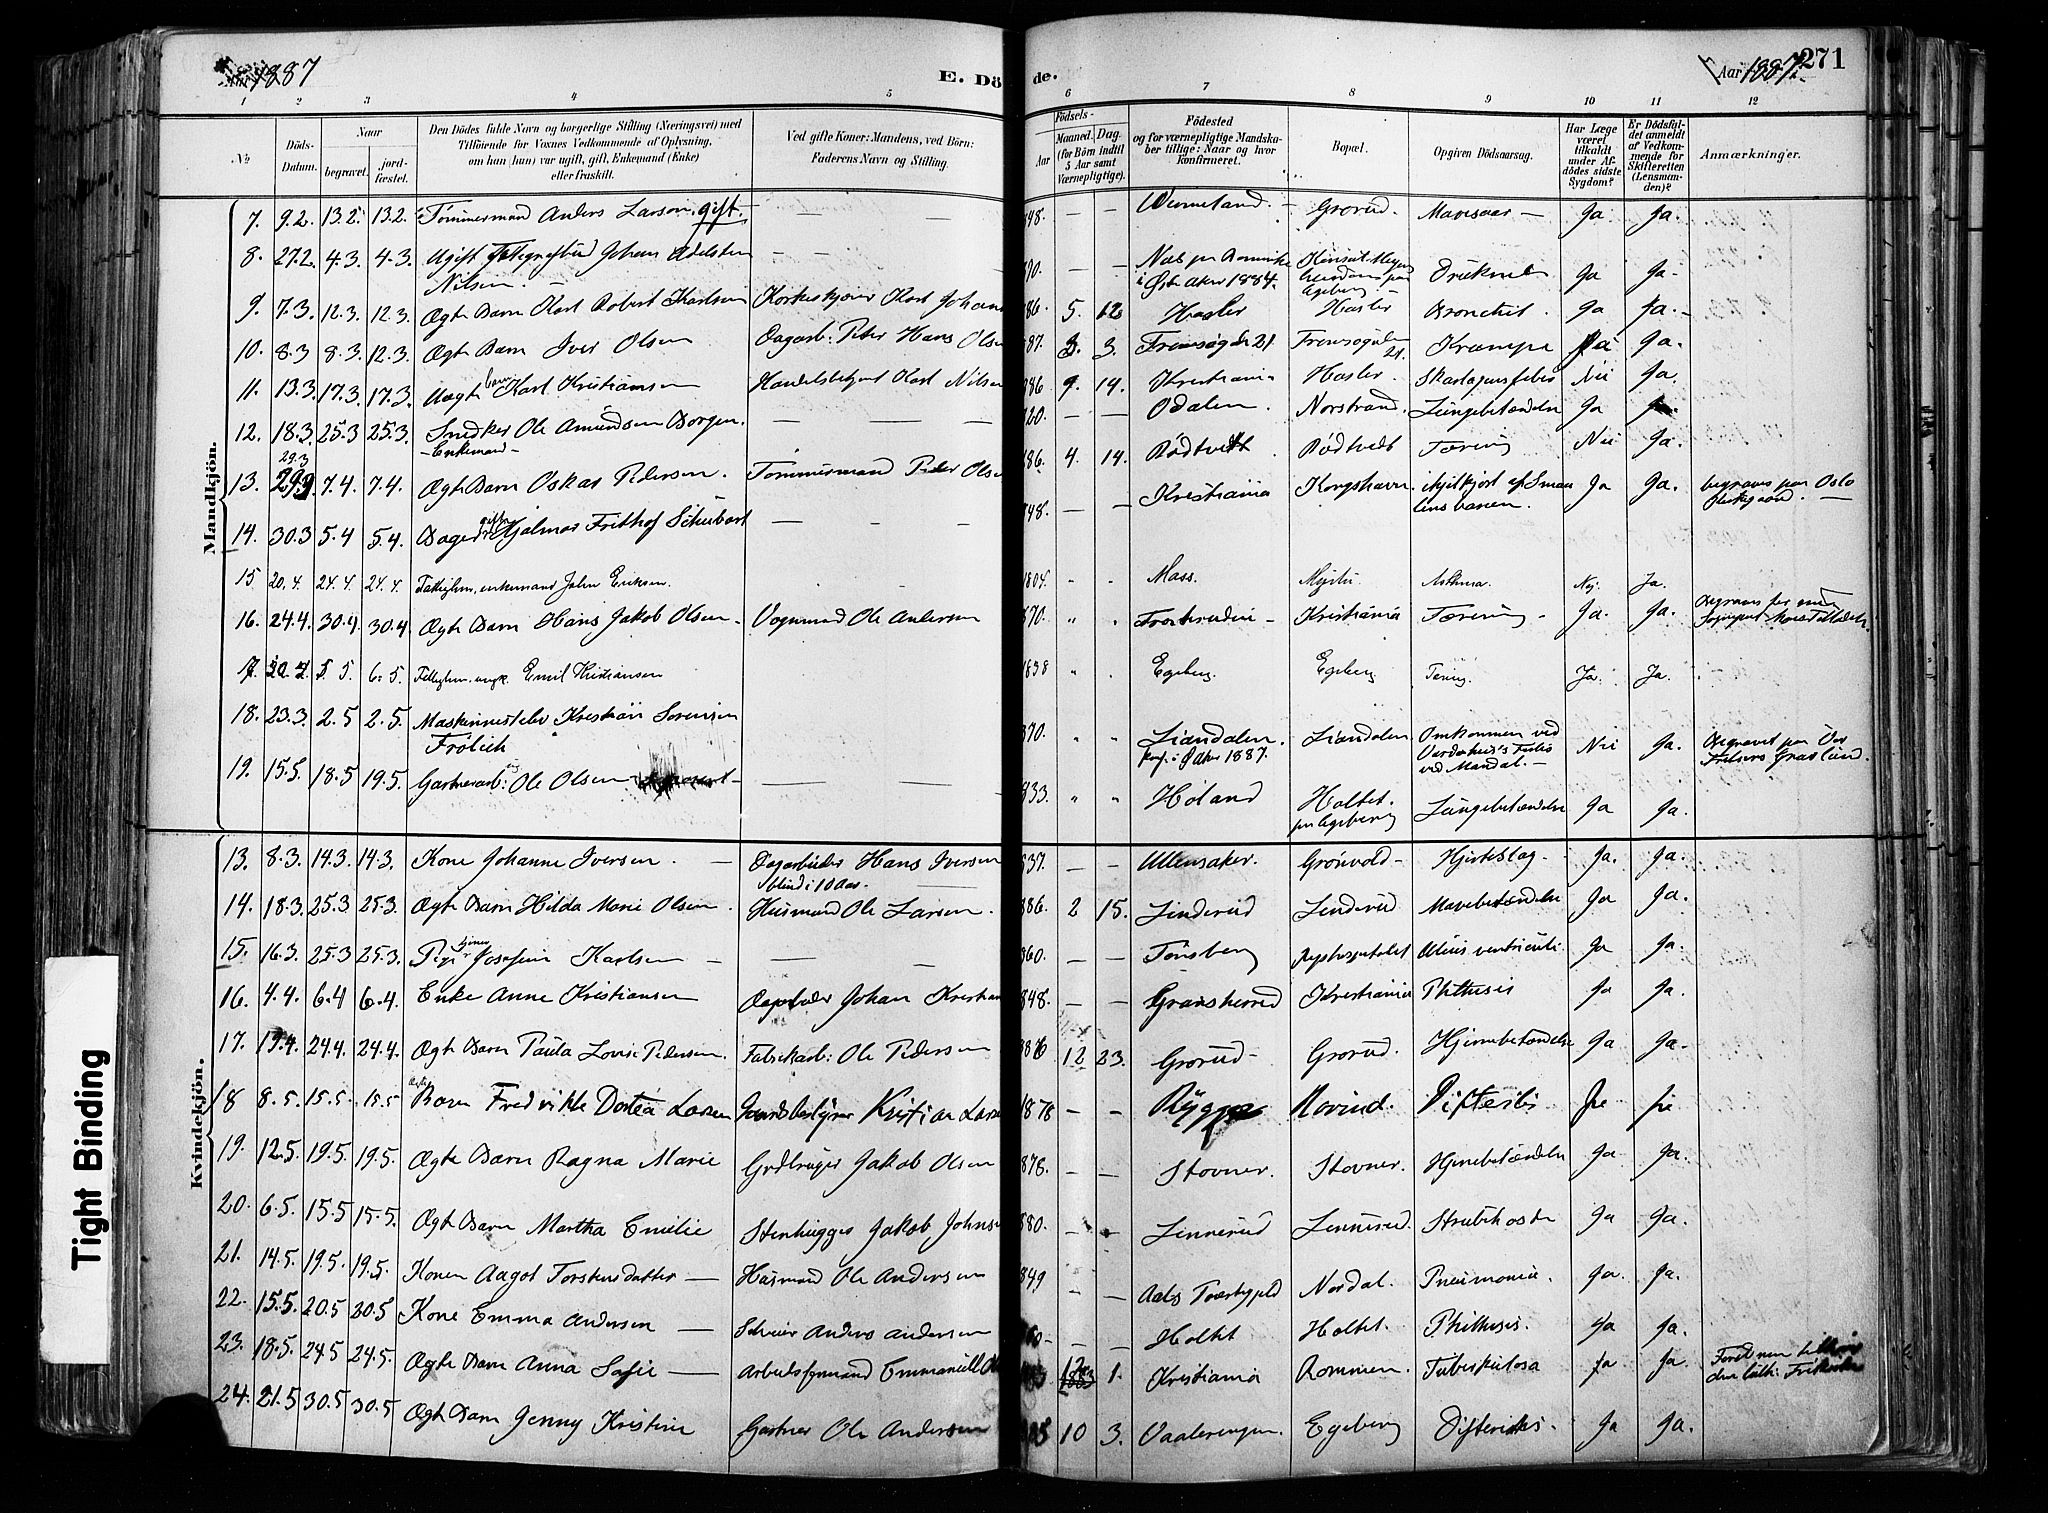 1887
E. Dö de.
Aar 1887. 271
1 2 3 4 5 6 7 8 9 10 11 12
№
Döds-Datum.
Naar
begravet.
jord-fæstet.
Den Dödes fulde Navn og borgerlige Stilling (Næringsvei) med
Tilföiende for Voxnes Vedkommende af Oplysning,
om han (hun) var ugift, gift, Enkemand (Enke)
eller fraskilt.
Ved gifte Koner: Mandens, ved Börn:
Faderens Navn og Stilling.
Födsels-
Aar
Maaned. Dag
(for Börn indtil
5 Aar samt
Værnepligtige).
Födested
og for værnepligtige Mandska-
ber tillige: Naar og hvor
Konfirmeret.
Bopæl.
Opgiven Dödsaarsag.
Har Læge
været
tilkaldt
under Af-
dödes sidste
Sygdom?
Er Dödsfal-
det anmeldt
af Vedkom-
mende for
Skifteretten
(Lensman-
den)?
Anmærkninger.
Mandkjön.
7. 9.2. 13.2. 13.2. Tømmermand Anders Larsen. gift. — — 848. — — Wermeland. Grorud. — Ja Ja.
8. 27.2. 4.3. 4.3. Ugift Johan Adelsten — — — — Ja Ja
Nilsen. i Østre Aker 1884. Egeberg
9. 7.3. 12.3. 12.3. Ægte Barn Karl Robert Karlsen Karl Johan 886 5. 12 Hasler Hasler Bronchit Ja Ja.
10. 8.3 8.3. 12.3. Ægte Barn Iver Olsen Dagarb: Peter Hans Olse 887. 3. 3. 21 21. Krampe Ja Ja.
11. 13.3. 17.3. 17.3. Uægte barn Karl Kristiansen Karl Nilsen 886 9. 14. Kristiania Hasler. Skarlagensfeber Nei Ja.
12. 18.3. 25.3 25.3. Snedker Ole Amundsen Borgen. — — — 820. — — Odalen. Norstrand. Lungebetændelse Ja Ja
- Enkemand -
29.3
13. 29.3. 7.4. 7.4. Ægte Barn Oskar Pedersen. Tømmermand Peder Olse 886. 4. 14. Rødtvedt Rødtvedt Tæring Nei Ja.
14. 30.3 5.4 5.4. gift Hjalmar Frithof Schubart — — — 848. — — Kristiania Kongshavn. ihjelkjørt af Smaa Ja Ja. begraves paa Oslo
lensbanen.
15 20.4. 24.4. 24.4. Fattiglem, enkemand John Eriksen. 1804. " " Moss. Asthma. Nej. Ja.
16. 24.4. 30.4. 30.4. Ægte Barn Hans Jakob Olsen. Vognmand Ole Andersen 870. " " Kristiania Tæring Ja. Ja.
17. 30.4. 5.5. 6.5. Fattiglem, ungk. Emil Kristiansen 1838 " " Egeberg. Egeberg Tæring. Ja. Ja.
18. 23.3. 2.5 2.5. Maskinnestelev Kristian Sørensen 870. " " Liandalen. Liandalen Omkommen ved Nei Ja. Begravet paa Vor
Frølich konf. i Aker 1887. ved Mandal. — Frelsers Gravlund.
19. 15.5. 18.5 19.5. Gartnerarb: Ole Olsen — — 833. " " Høland Holtet Lungebetændelse Ja Ja.
paa Egeberg
Kvindekjön.
13. 8.3. 14.3. 14.3. Kone Johanne Iversen. — Dagarbeider Hans Iversen 837. — — Ullensaker. Grønvold Hjerteslag. Ja. Ja.
blind i 10 Aar.
14. 18.3. 25.3 25.3. Ægte Barn Hilda Marie Olsen. Husmand Ole Larsen. 886. 2 15. Linderud Linderud Mavebetændelse Ja Ja.
15. 16.3. 25.3 25.3. Pige Josefine Karlsen — — — 860. — — Tønsberg Ulcus ventriculi. Ja Ja.
16. 4.4. 6.4 6.4. Enke Anne Kristiansen Johan Kristian 848. — — Gransherred Kristiania Phthisis Ja Ja.
17. 19.4. 24.4. 24.4. Ægte Barn Paula Lovise Pedersen. Fabrikarb: Ole Pedersen 886 12 23. Grorud Grorud. Hjernebetændelse Ja Ja.
18 8.5. 15.5. 15.5 Ægte Barn Fredrikke Dortea Larsen Gaardsbestyrer Kristian Larse 1878 — — Rygge Hovind. Difteritis Ja Ja
19. 12.5. 19.5. 19.5. Ægte Barn Ragna Marie Grdbruger Jakob Olsen 878. — — Stovner. Stovner. Hjernebetændelse Ja Ja.
20. 6.5. 15.5 15.5. Ægte Barn Martha Emilie Stenhugger Jakob Johns 880. — — Linnerud Linnerud. Strubehoste Ja Ja.
21. 14.5. 19.5. 19.5. Konen Aagot Torstensdatter — Husmand Ole Andersen 849 — — Nordal. Pneumonia. Ja. Ja.
22. 15.5. 20.5 20.5 Kone Emma Andersen — Anders Andersen — — Holtet Holtet. Phthisis. Ja Ja.
23. 18.5. 24.5 24.5. Ægte Barn Anna Sofie — Arbeidsformand Emmanuel 12 1. Kristiania Rommen. Tuberkulosa Ja Ja.
24. 21.5 30.5 30.5 Ægte Barn Jenny Kristine Gartner Ole Andersen 10 3. Vaalerengen. Egeberg Difteritis. Ja Ja.
Tight Binding